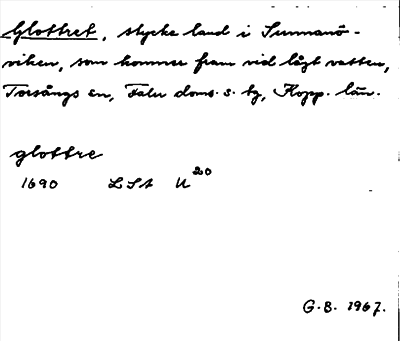 Glottret, stycke land i Sunnanö-
viken, som kommer fram vid lågt vatten,
Torsångs sn, Falu doms. s. bg, Kopp. län.
glottre
1690 LSA U 20
G.B. 1967.